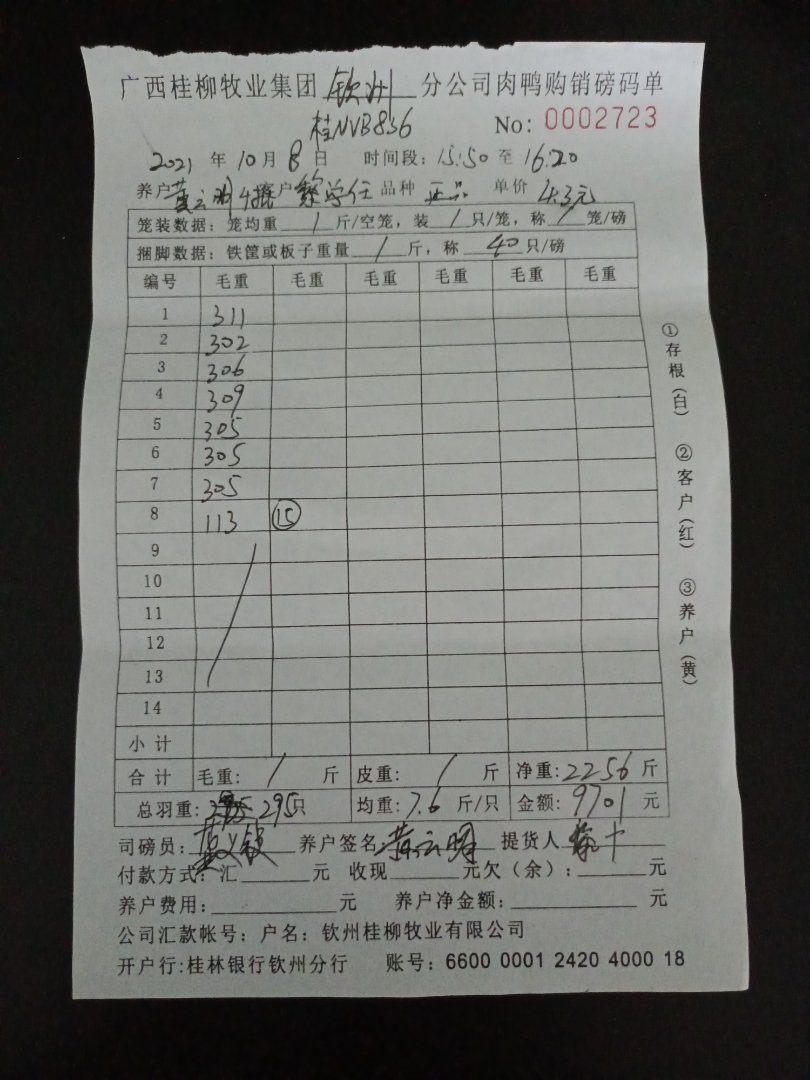 广西桂柳牧业集团 钦州 分公司肉鸭购销磅码单
桂NVB836 No: 0002723
2021 年 10 月 8 日 时间段: 15:50 至 16:20
养户 黄云明 客户 黎学任 品种 正品 单价 4.3元
笼装数据: 笼均重 / 斤/空笼, 装 / 只/笼, 称 / 笼/磅
捆脚数据: 铁筐或板子重量 / 斤, 称 40 只/磅
编号 毛重 毛重 毛重 毛重 毛重 毛重
1 311
2 302
3 306
4 309
5 305
6 305
7 305
8 113 15
9
10
11
12
13
14
小计
合计 毛重: / 斤 皮重: / 斤 净重: 2256 斤
总羽重: 295只 均重: 7.6 斤/只 金额: 9701 元
司磅员: 养户签名 黄云明 提货人
付款方式: 汇 元 收现 元欠(余): 元
养户费用: 元 养户净金额: 元
公司汇款帐号: 户名: 钦州桂柳牧业有限公司
开户行:桂林银行钦州分行 账号: 6600 0001 2420 4000 18
①存根(白) ②客户(红) ③养户(黄)